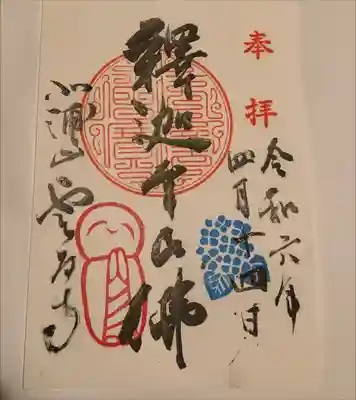 奉拝
令和六年
四月十四日
釋迦牟尼佛
北浦山雲昌寺